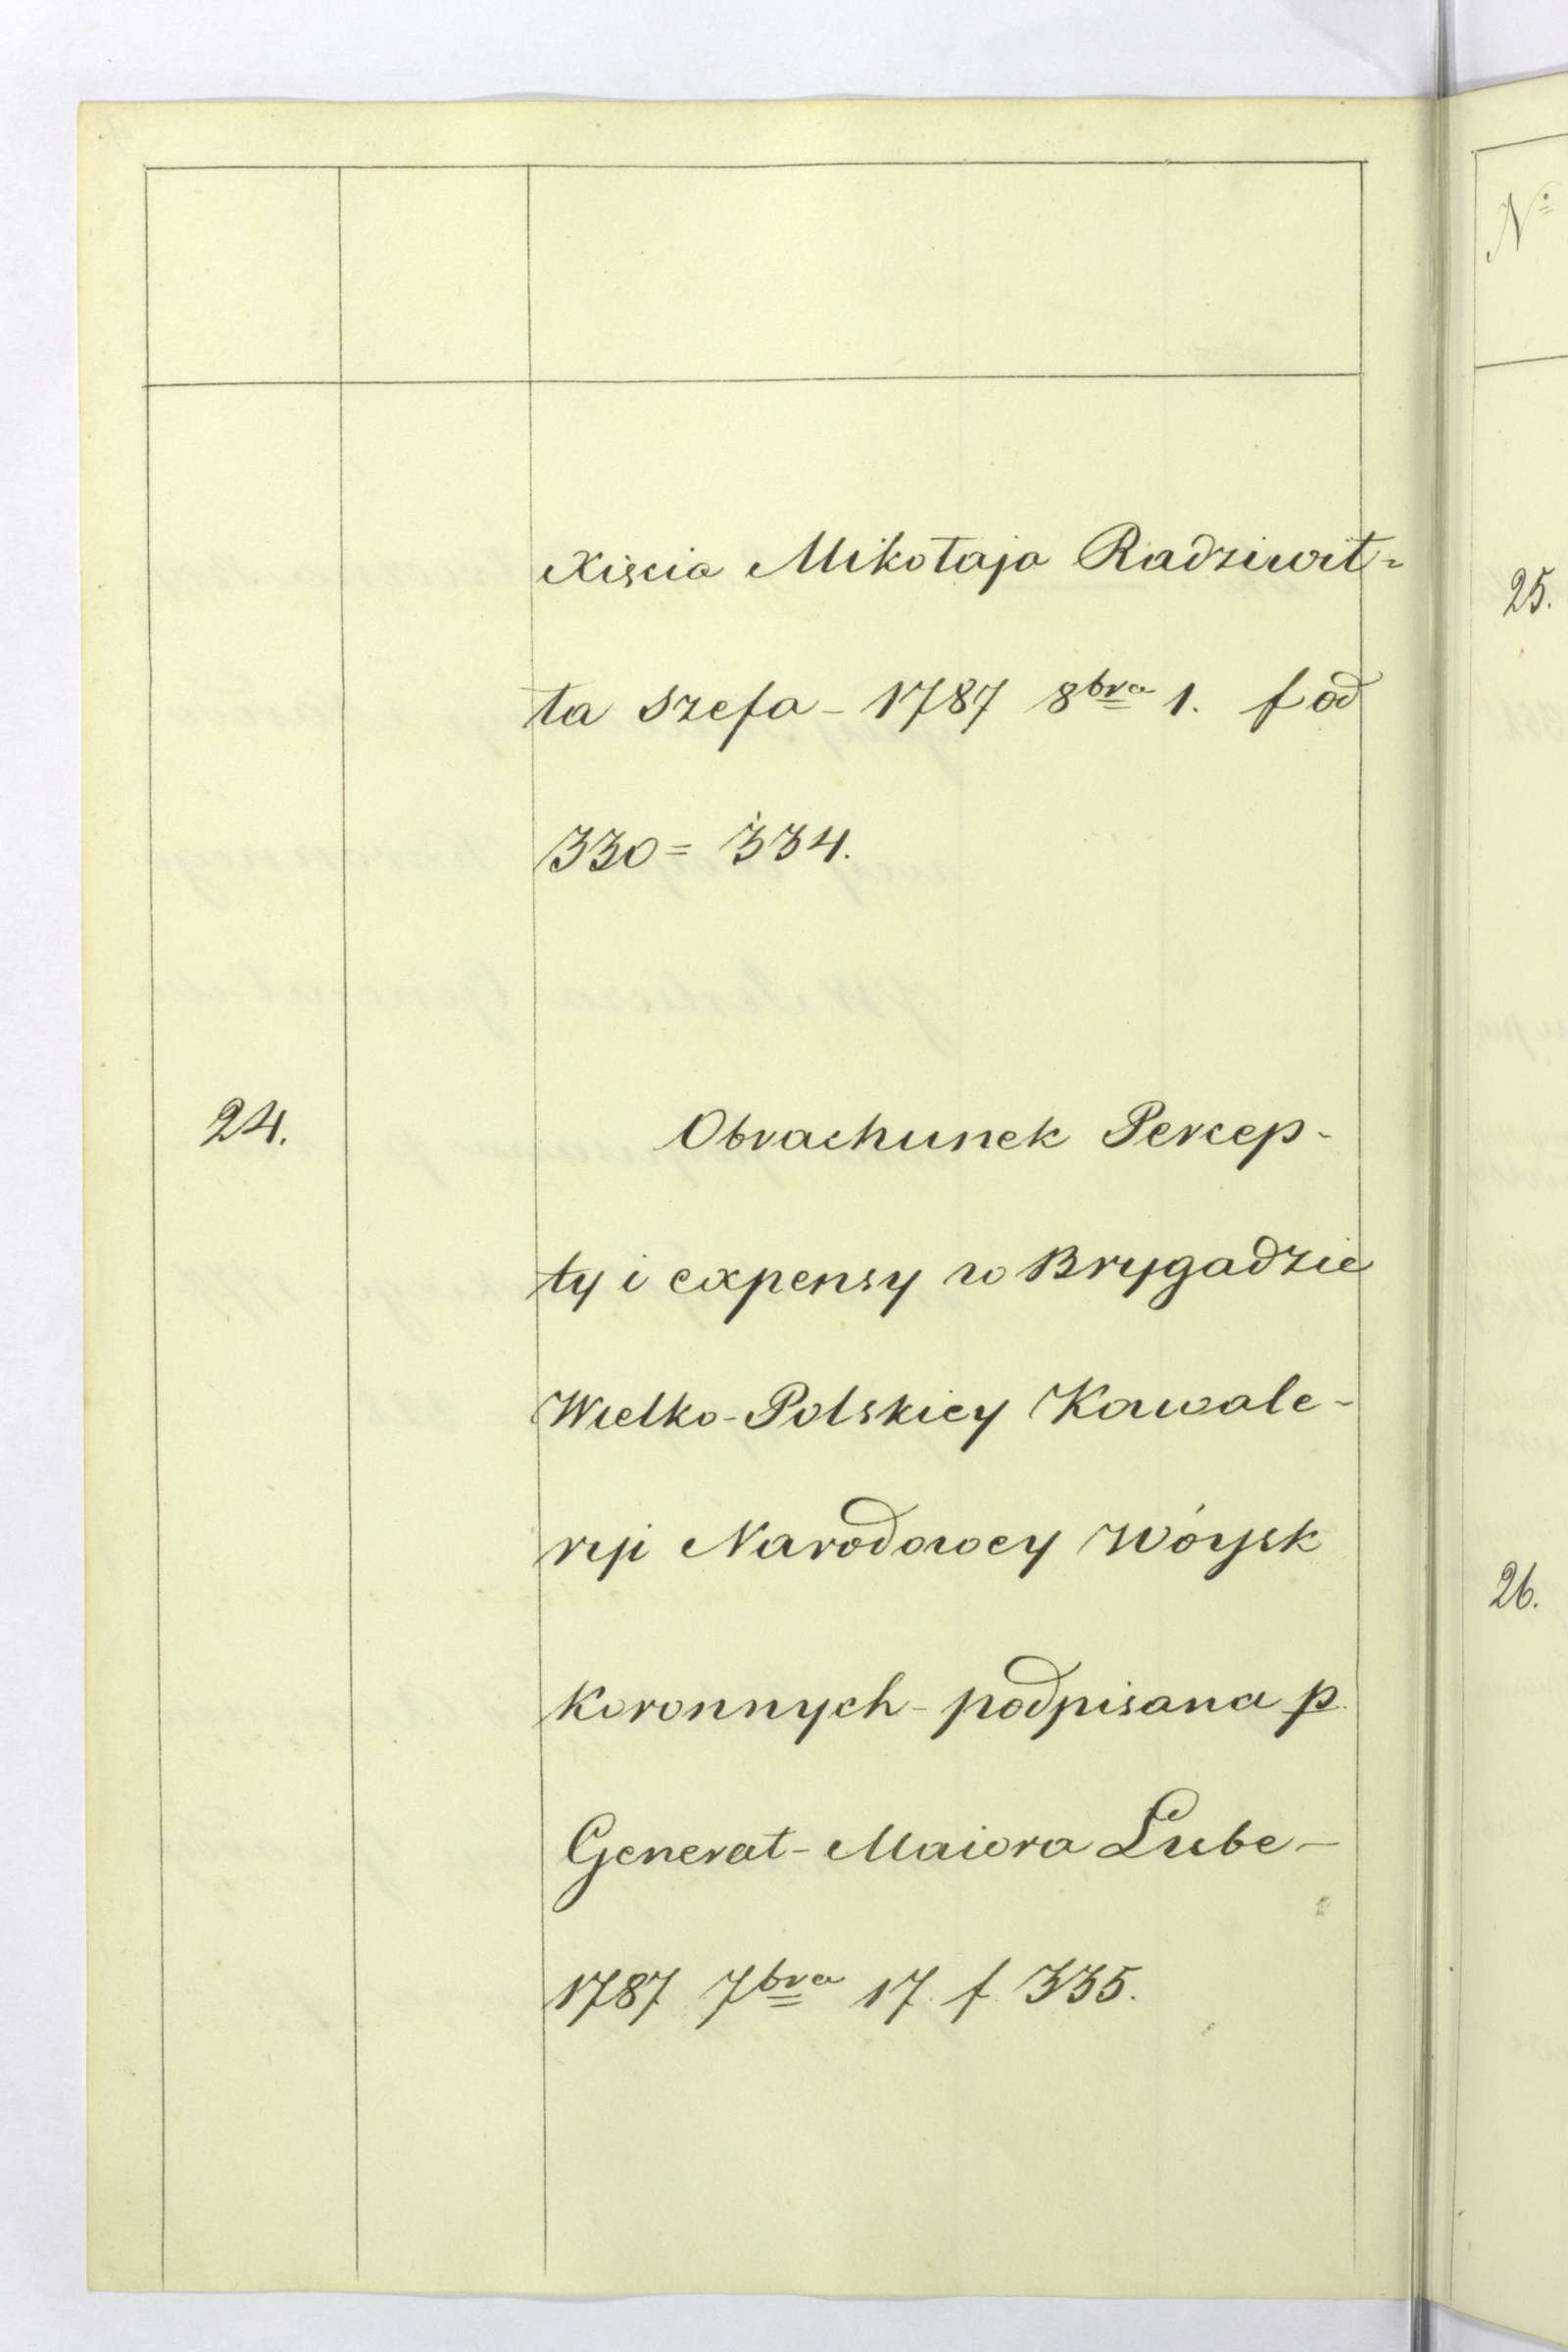 Xiscia Mikołaja Radziwił=
ła Szefa - 1787 8bra 1. f od
330 = 334.
24.
Obrachunek Percep-
ty i expensy w Brygadzie
Wielko-Polskiey Kawale-
ryi Narodowey Wóysk
Koronnych - podpisana p.
Generał-Maiora Lube-
1787 7bra 17. f. 335.
No
25.
26.